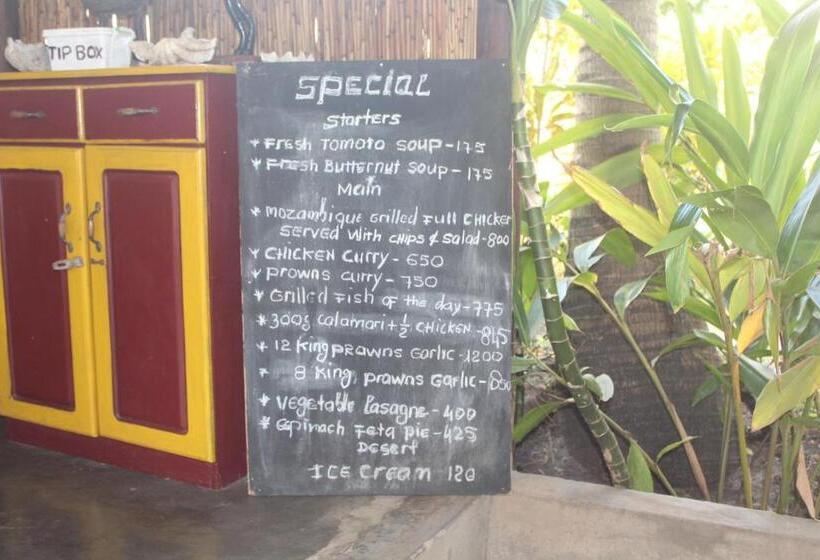 TIP BOX
Special
Starters
* Fresh Tomato soup - 175
* Fresh Butternut soup - 175
Main
* Mozambique Grilled Full Chicken
Served With chips & Salad - 800
* Chicken Curry - 650
* Prowns curry - 750
* Grilled Fish of the day - 775
* 300g Calamari + ½ Chicken - 845
* 12 King prawns Garlic - 1200
* 8 King prawns Garlic -
* Vegetable Lasagne - 400
* Spinach Feta pie - 425
Desert
ICE Cream 120